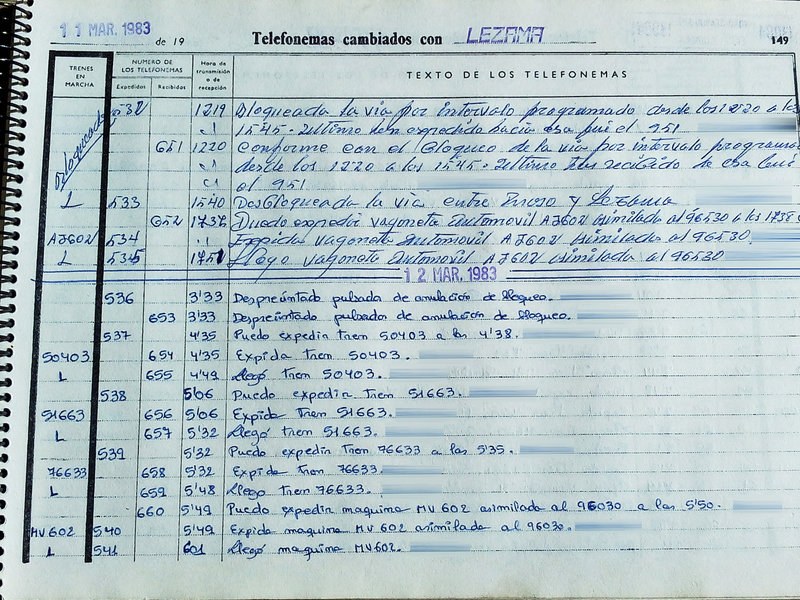 11 MAR. 1983 de 19 Telefonemas cambiados con LEZAMA 149
TRENES EN MARCHA
NUMERO DE LOS TELEFONEMAS
Expedidos Recibidos
Hora de transmisión o de recepción
TEXTO DE LOS TELEFONEMAS
Bloqueada
532 1219 Bloqueada la via por intervalo programado desde los 1220 a los
1545. Ultimo tren expedido hacia esa fue el 951
651 1220 Conforme con el Bloqueo de la via por intervalo programado
desde los 1220 a los 1545. Ultimo tren recibido de esa
el 951
L 533 1540 Desbloqueada la via entre y Lezama
652 1736 Puedo expedir vagoneta automovil AJ602 asimilado al 96530 a las 1738
AJ602 534 Expida vagoneta automovil AJ602 asimilado al 96530.
L 535 1751 Llego vagoneta automovil AJ602 asimilado al 96530
12 MAR. 1983
536 3'33 Desprecintado pulsador de anulación de bloqueo.
653 3'33 Desprecintado pulsador de anulación de bloqueo.
537 4'35 Puedo expedir tren 50403 a las 4'38.
50403 654 4'35 Expida tren 50403.
L 655 4'49 Llegó tren 50403.
538 5'06 Puedo expedir tren 51663.
51663 656 5'06 Expida tren 51663.
L 657 5'32 Llegó tren 51663.
539 5'32 Puedo expedir tren 76633 a las 5'35.
76633 658 5'32 Expida tren 76633.
L 659 5'48 Llegó tren 76633.
660 5'49 Puedo expedir maquina MV 602 asimilada al 96030 a las 5'50.
MV 602 540 5'49 Expida maquina MV 602 asimilada al 96030.
L 541 601 Llegó maquina MV 602.